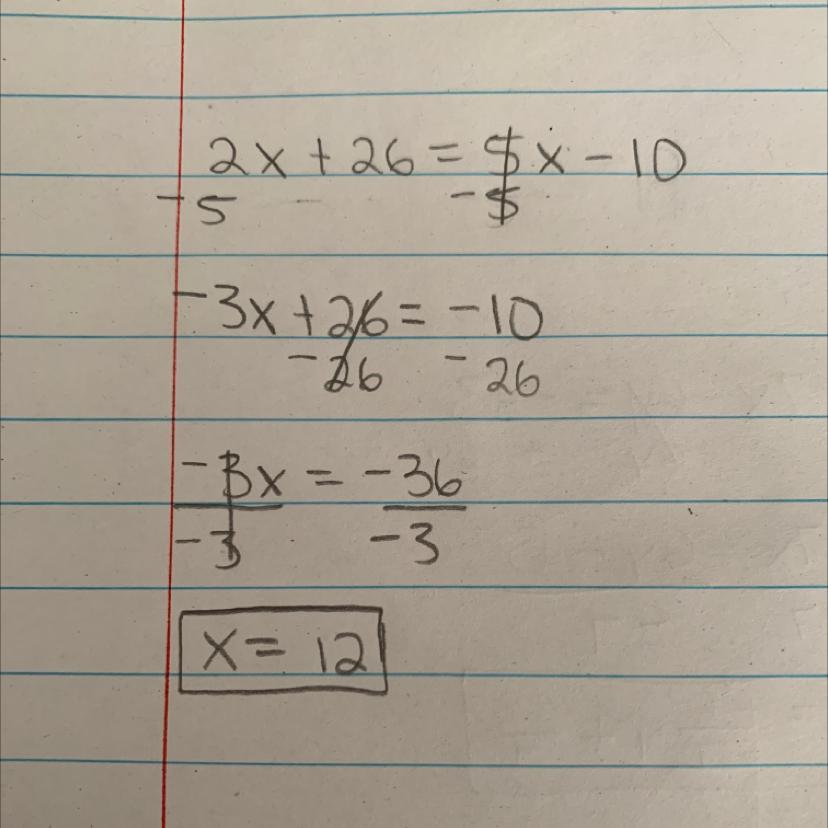 2x + 26 = 5x - 10
-5 -5
-3x + 26 = -10
-26 -26
-3x = -36
-3 -3
x = 12